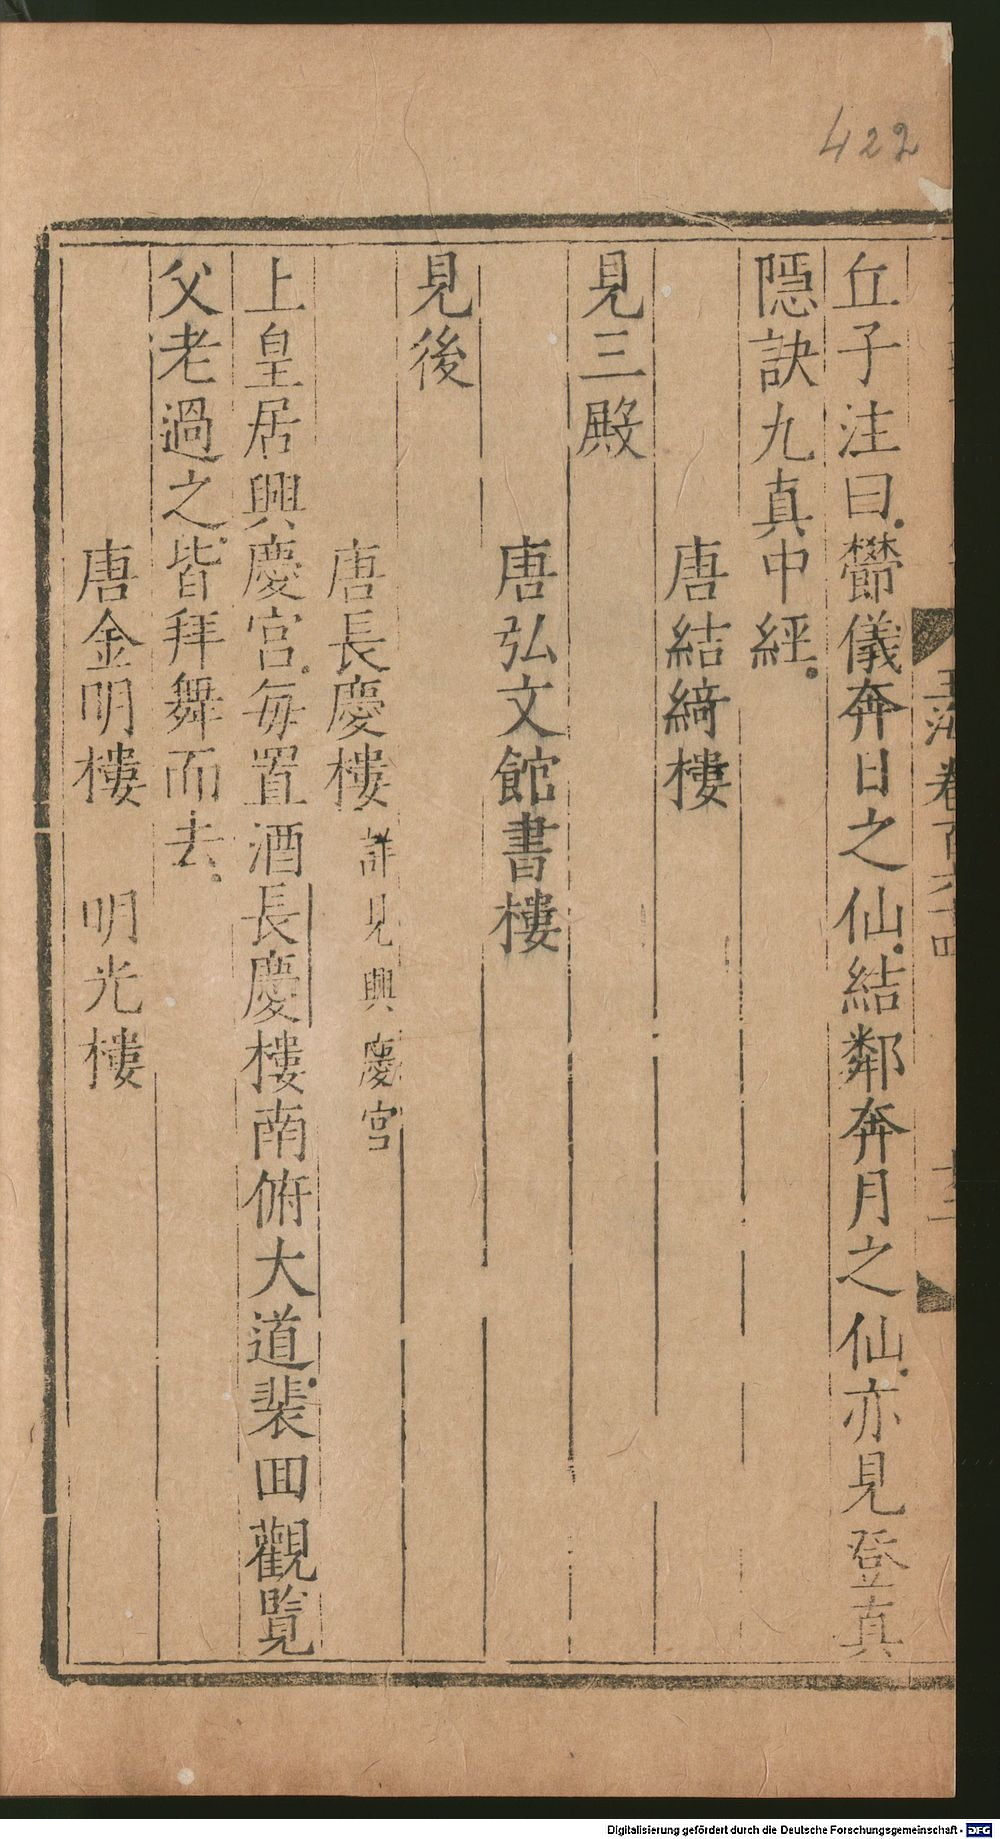 422
玉海卷百六十四
丘子注曰鬱儀奔日之仙結鄰奔月之仙亦見登真
隱訣九真中經
唐結綺樓
見三殿
唐弘文館書樓
見後
唐長慶樓 詳見興慶宮
上皇居興慶宮每置酒長慶樓南俯大道裴回觀覽
父老過之皆拜舞而去
唐金明樓 明光樓
Digitalisierung gefördert durch die Deutsche Forschungsgemeinschaft - DFG